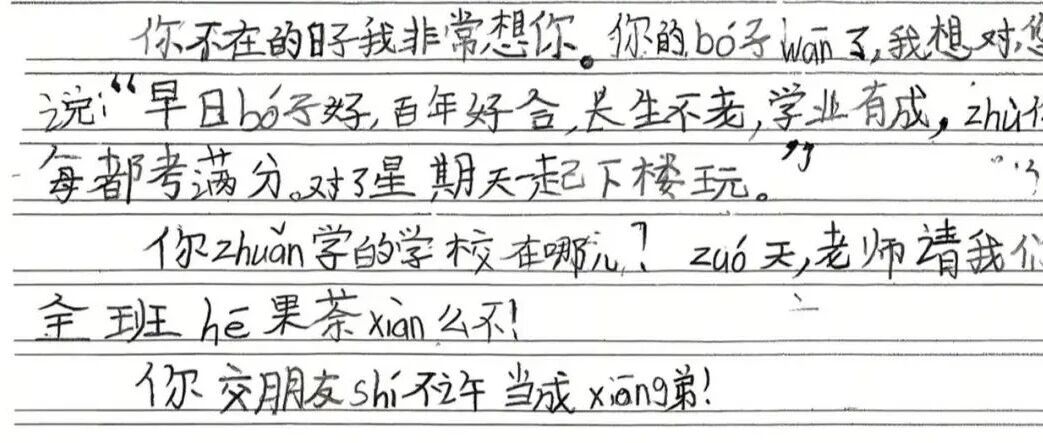 你不在的日子我非常想你。你的bó子wān了,我想对您
说:“早日bó子好,百年好合,长生不老,学业有成,zhù
每都考满分。对了星期天一起下楼玩。”
你zhuǎn学的学校在哪儿? zuó天,老师请我们
全班hē果茶xiàn么不!
你交朋友shí不 当成xiōng弟!